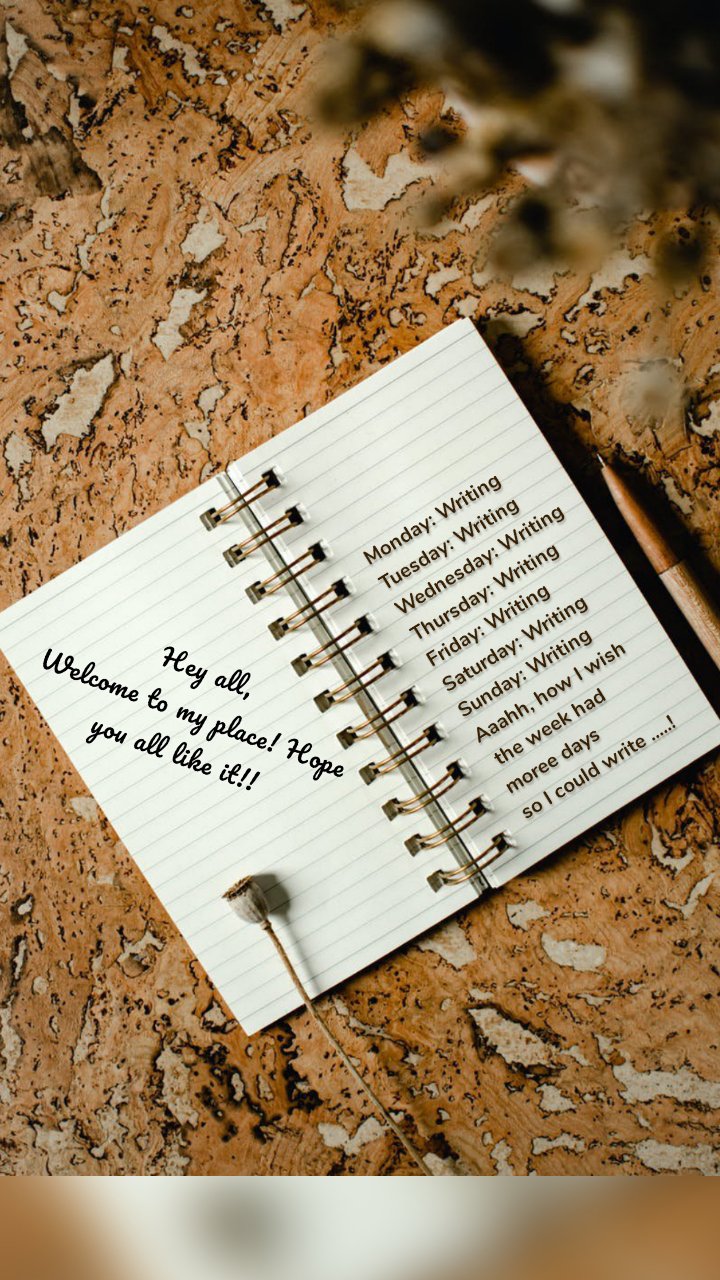 Hey all,
Welcome to my place! Hope
you all like it!!
Monday: Writing
Tuesday: Writing
Wednesday: Writing
Thursday: Writing
Friday: Writing
Saturday: Writing
Sunday: Writing
Aaahh, how I wish
the week had
moree days
so I could write .....!